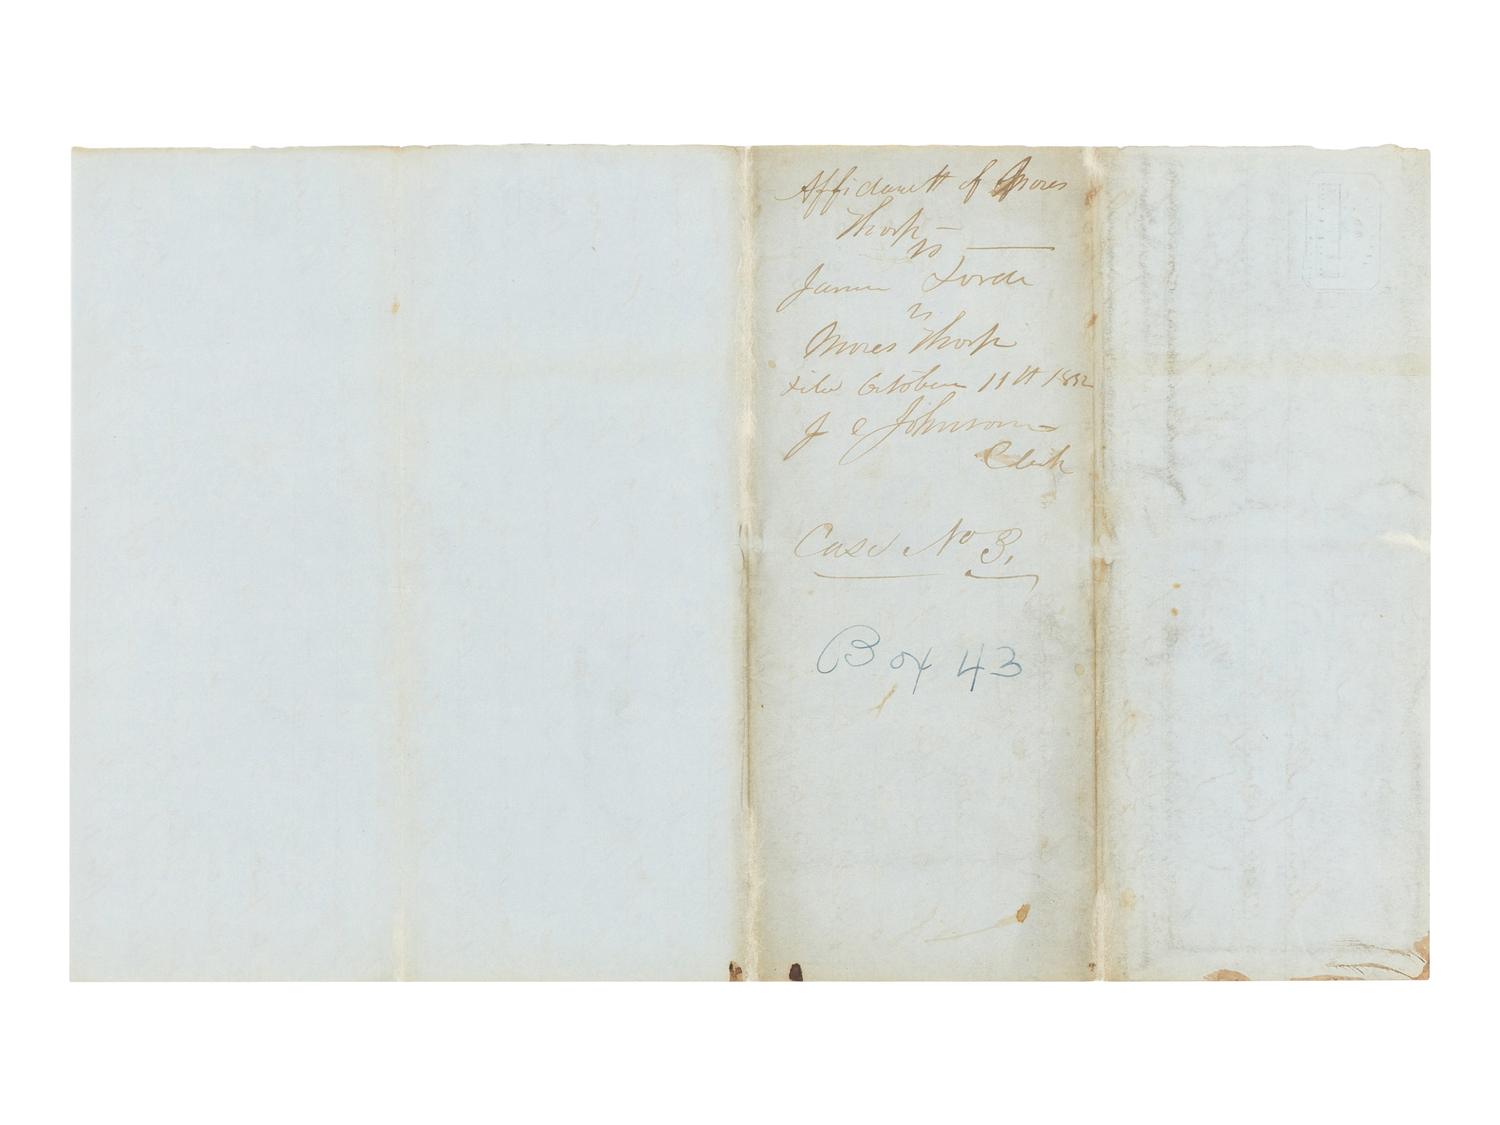 Affidavett of Moses
Thorp
vs
James Lord
vs
Moses Thorp
File October 11th 1852
J C Johnson
Clerk
Case No 3.
Box 43